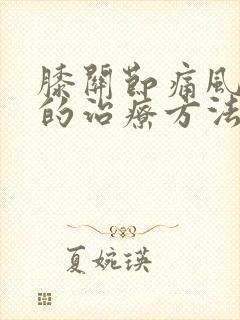 膝關節痛風
的治療方法
夏婉瑛